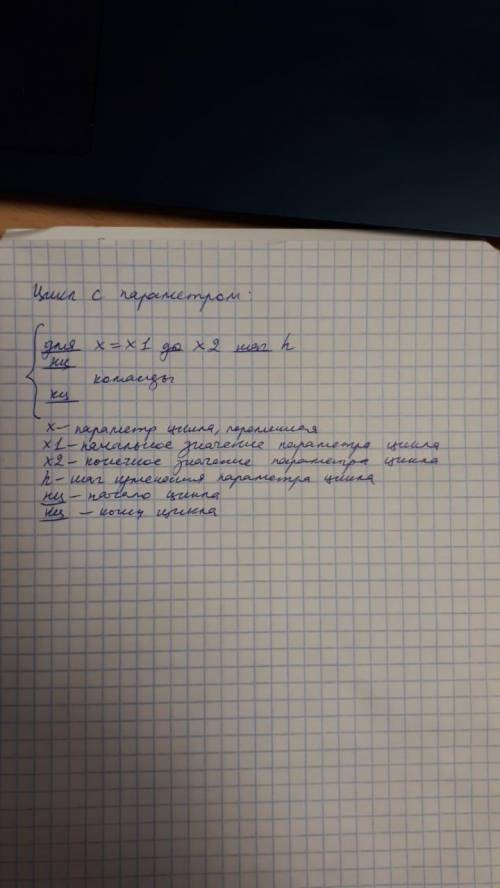 Цикл с параметром:
для x=x1 до x2 шаг h
нц
команды
кц
x - параметр цикла, переменная
x1 - начальное значение параметра цикла
x2 - конечное значение параметра цикла
h - шаг изменения параметра цикла
нц - начало цикла
кц - конец цикла